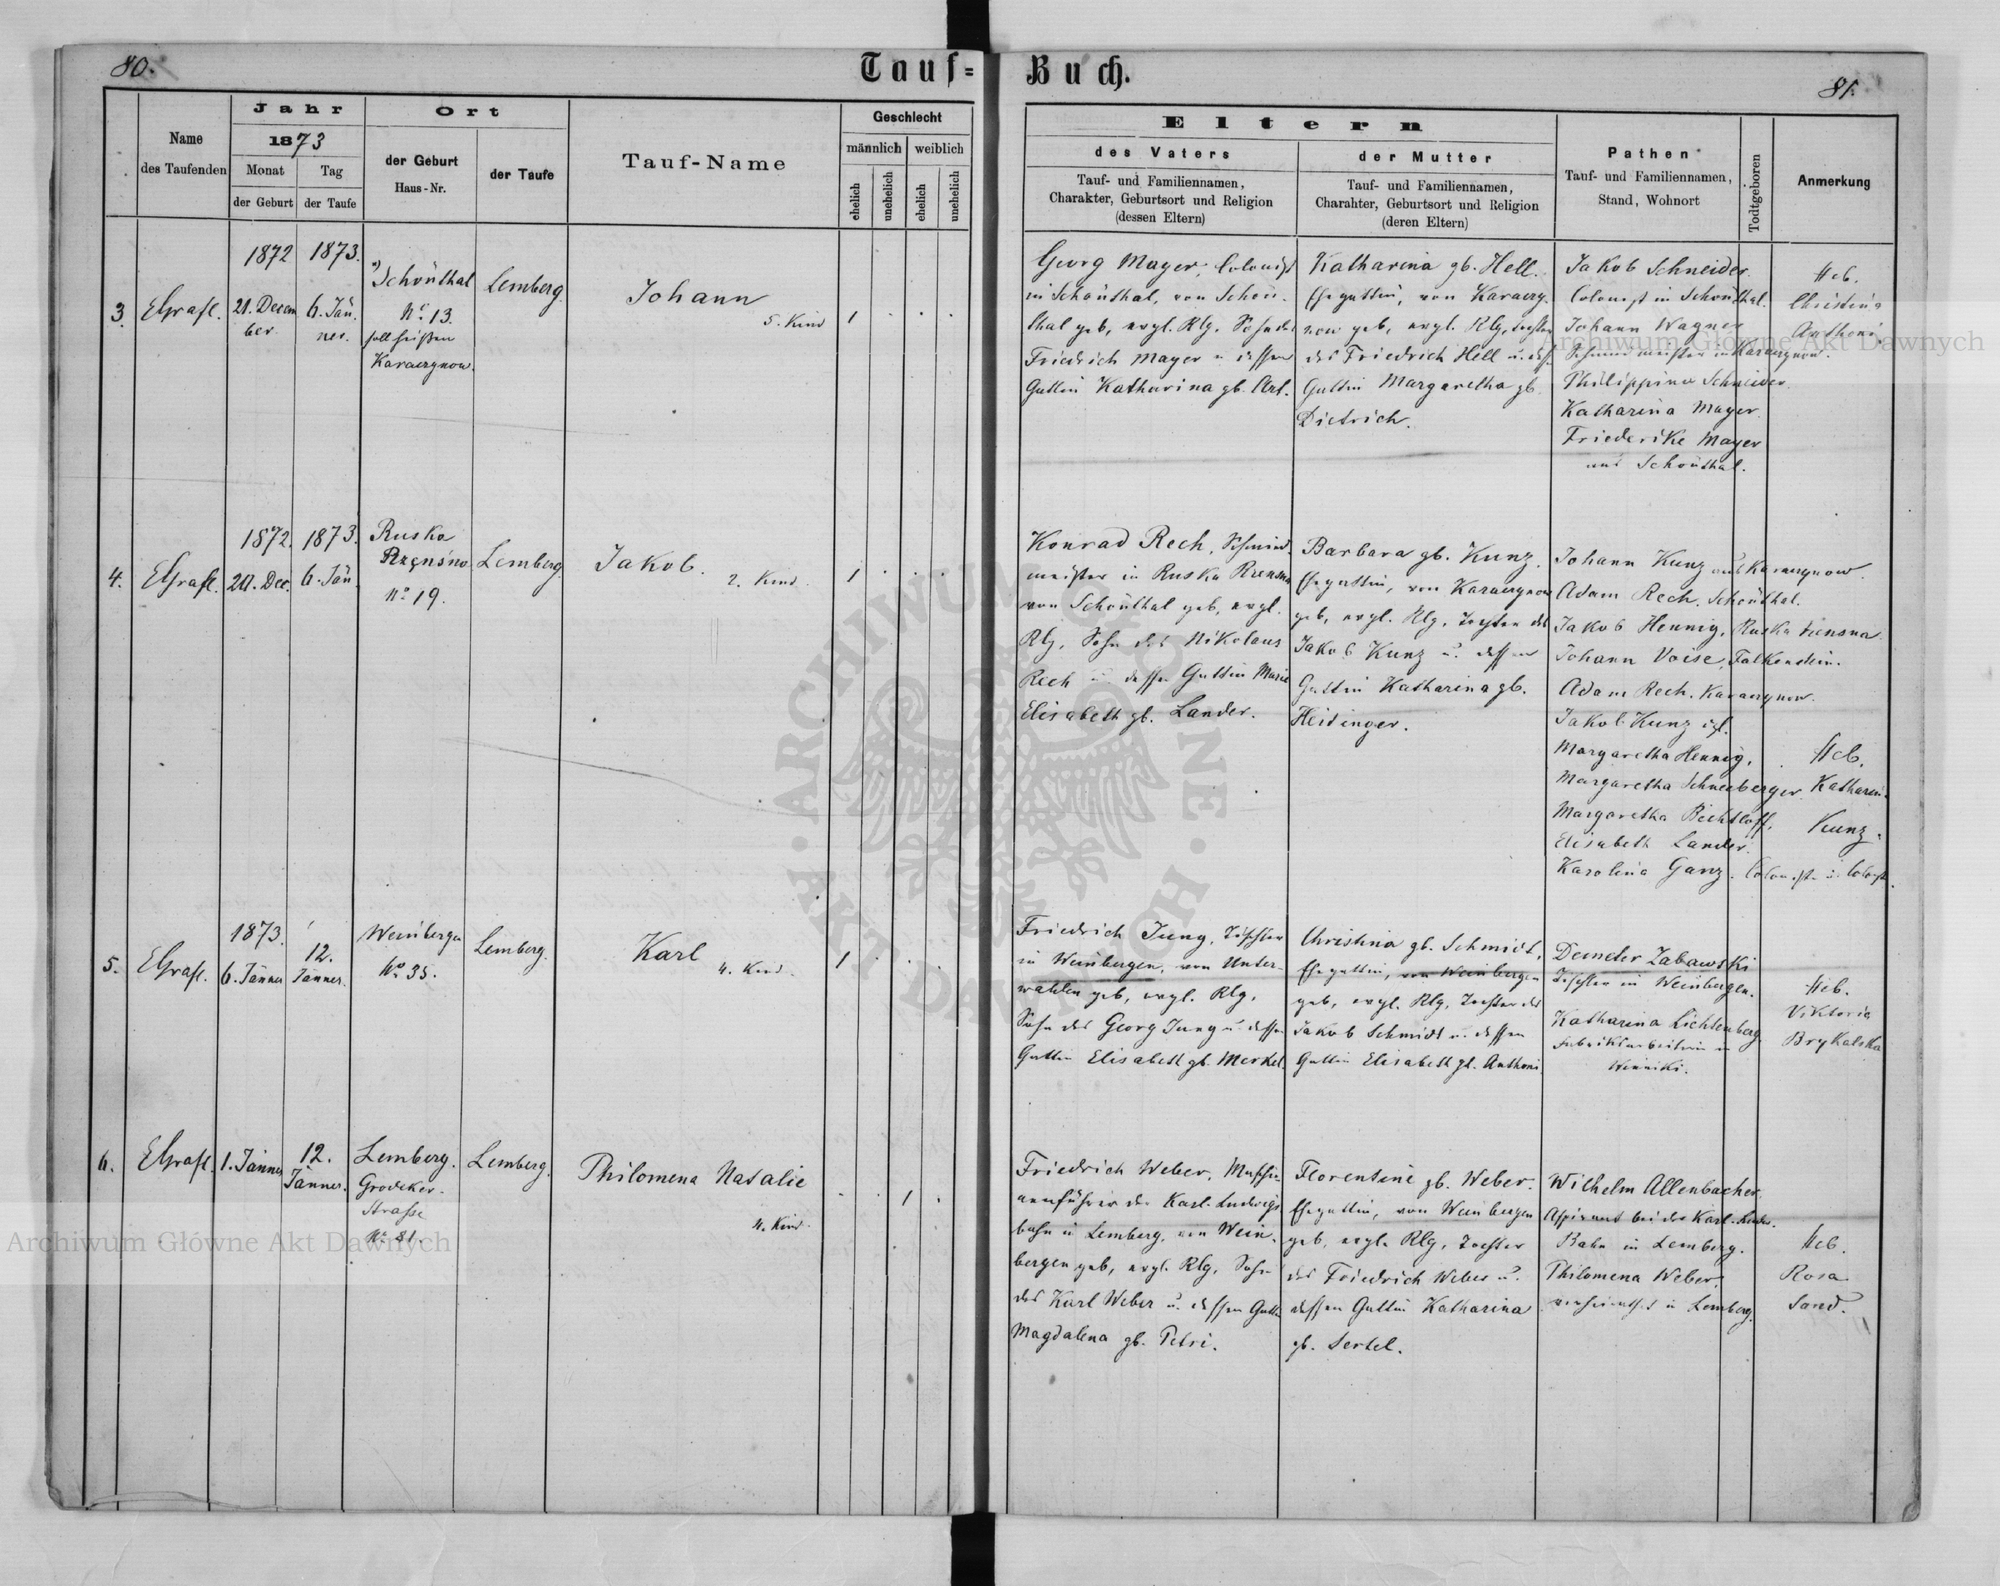 80.
Tauf=
Buch.
81.
Name
des Taufenden
Jahr
1873
Monat
Tag
der Geburt
der Taufe
Ort
der Geburt
Haus-Nr.
der Taufe
Tauf-Name
Geschlecht
männlich
weiblich
ehelich
unehelich
ehelich
unehelich
Eltern
des Vaters
Tauf- und Familiennamen,
Charakter, Geburtsort und Religion
(dessen Eltern)
der Mutter
Tauf- und Familiennamen,
Charahter, Geburtsort und Religion
(deren Eltern)
Pathen
Tauf- und Familiennamen,
Stand, Wohnort
Todtgeboren
Anmerkung
3.
EGrafl.
1872
21. Decem
ber.
1873.
6. Jän
ner.
Schönthal
No. 13.
soll heißen
Karaczynow.
Lemberg
Johann
5. Kind
1
Georg Mayer, Colonist
in Schönthal, von Schön-
thal geb, evgl. Rlg. Sohn des
Friedrich Mayer u dessen
Gattin Katharina gb. Art.
Katharina gb. Hell.
Ehegattin, von Karaczy-
now geb, evgl. Rlg, Tochter
des Friedrich Hell u. dess
Gattin Margaretha gb
Dietrich.
Jakob Schneider
Colonist in Schönthal.
Johann Wagner
in Karaczynow.
Philippina Schneider
Katharina Mayer
Friederike Mayer
aus Schönthal.
Heb.
Christina
Anthoni
4.
EGrafl.
1872.
20. Dec.
1873.
6. Jän
Ruska
Rzęnsno
No 19.
Lemberg
Jakob.
2. Kind
1
Konrad Rech, Schmied-
meister in Ruska Rzensna
von Schönthal geb, evgl.
Rlg, Sohn des Nikolaus
Rech u dessen Gattin Marie
Elisabeth gb. Lander.
Barbara gb. Kunz.
Ehegattin, von Karaczynow
geb, evgl. Rlg, Tochter des
Jakob Kunz u. dessen
Gattin Katharina gb.
Heidinger.
Johann Kunz aus Karaczynow.
Adam Rech. Schönthal.
Jakob Hennig, Ruska
Johann Voise, Falkenstein.
Adam Rech. Karaczynow.
Jakob Kunz
Margaretha Hennig,
Margaretha Schneeberger
Margaretha Bechtloff,
Elisabeth Lander.
Karolina Ganz.
Heb.
Katharin
Kunz.
5.
EGrafl.
1873.
6. Jänner
12.
Jänner.
Weinbergen
No 35.
Lemberg.
Karl
4. Kind.
1
Friedrich Jung, Tischler
in Weinbergen, von Unter-
walden geb, evgl. Rlg,
Sohn des Georg Jung u. dessen
Gattin Elisabeth gb. Merkel.
Christina gb. Schmidt,
Ehegattin, von Weinbergen
geb, evgl. Rlg, Tochter des
Jakob Schmidt u. dessen
Gattin Elisabeth gb. Anthoni
Demeter Zabawski
Tischler in Weinbergen.
Katharina Lichtenberg
Fabriksarbeiterin in
Winniki.
Heb.
Viktoria
Brykalska
6.
EGrafl.
1. Jänner
12.
Jänner.
Lemberg.
Grodeker-
Strasse
No. 81.
Lemberg.
Philomena Natalie
4. Kind.
1
Friedrich Weber, Maschi-
nenführer der Karl-Ludwigs
bahn in Lemberg, von Wein-
bergen geb, evgl. Rlg, Sohn
des Karl Weber u. dessen Gattin
Magdalena gb. Petri.
Florentine gb. Weber.
Ehegattin, von Weinbergen
geb, evgl. Rlg, Tochter
des Friedrich Weber u.
dessen Gattin Katharina
gb. Sertel.
Wilhelm Allenbacher
Aspirant bei der Karl-Ludw.
Bahn in Lemberg.
Philomena Weber
in Lemberg.
Heb.
Rosa
Sand.
Archiwum Główne Akt Dawnych
Archiwum Główne Akt Dawnych
ARCHIWUM GŁÓWNE · AKT DAWNYCH ·